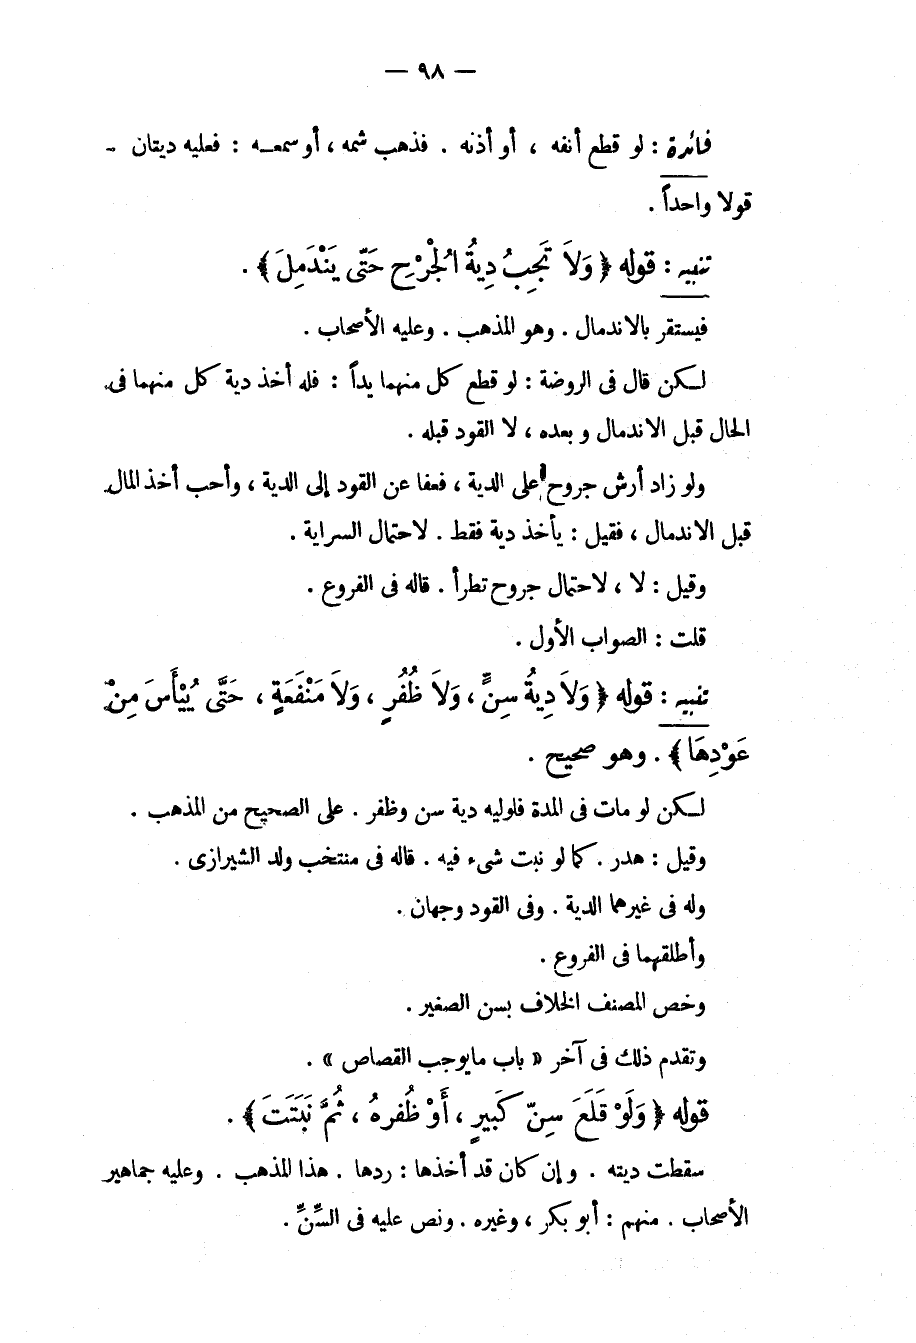 — ٩٨ —
فائدة : لو قطع أنفه ، أو أذنه . فذهب شمه ، أو سمعـه : فعليه ديتان -
قولا واحداً .
تنبيه : قوله ﴿ وَلاَ تَجِبُ دِيةُ الْجُرْحِ حَتّى يَنْدَمِلَ ﴾ .
فيستقر بالاندمال . وهو المذهب . وعليه الأصحاب .
لـكن قال فى الروضة : لو قطع كل منهما يداً : فله أخذ دية كل منهما فى
الحال قبل الاندمال و بعده ، لا القود قبله .
ولو زاد أرش جروح على الدية ، فعفا عن القود إلى الدية ، وأحب أخذ المال
قبل الاندمال ، فقيل : يأخذ دية فقط . لاحتمال السراية .
وقيل : لا ، لاحتمال جروح تطرأ . قاله فى الفروع .
قلت : الصواب الأول .
تنبيه : قوله ﴿ وَلاَ دِيةُ سِنٍّ ، وَلاَ ظُفُرٍ ، وَلاَ مَنْفَعَةٍ ، حَتَّى يُيْأَسَ مِنْ
عَوْدِهَا ﴾ . وهو صحيح .
لـكن لو مات فى المدة فلوليه دية سن وظفر . على الصحيح من المذهب .
وقيل : هدر . كما لو نبت شىء فيه . قاله فى منتخب ولد الشيرازى .
وله فى غيرهما الدية . وفى القود وجهان .
وأطلقهما فى الفروع .
وخص المصنف الخلاف بسن الصغير .
وتقدم ذلك فى آخر « باب مايوجب القصاص » .
قوله ﴿ وَلَوْ قَلَعَ سِنّ كَبيرٍ ، أَوْ ظُفرهُ ، ثُمَّ نَبَتَتَ ﴾ .
سقطت ديته . و إن كان قد أخذها : ردها . هذا المذهب . وعليه جماهير
الأصحاب . منهم : أبو بكر ، وغيره . ونص عليه فى السِّنِّ .